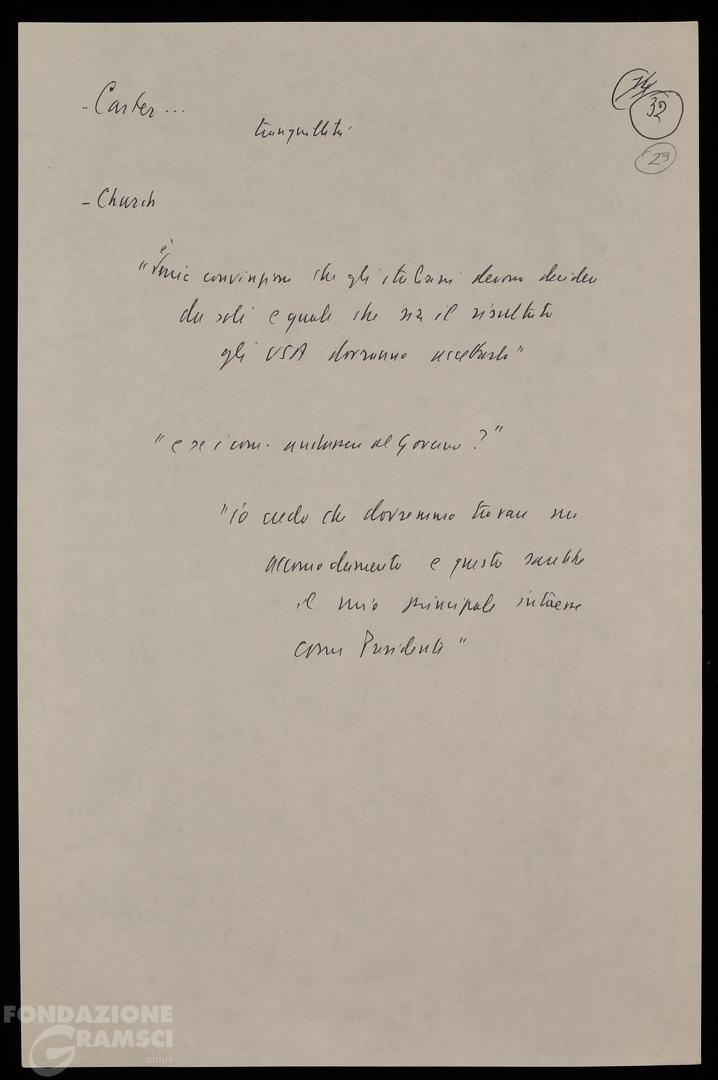 - Carter ...
tranquillità
14
32
29
- Church
"è mia convinzione che gli italiani devono decidere
da soli e quale che sia il risultato
gli USA dovranno accettarlo"
"e se i com. andassero al Governo?"
"io credo che dovremmo trovare un
accomodamento e questo sarebbe
il mio principale interesse
come Presidente"
FONDAZIONE
GRAMSCI
onlus